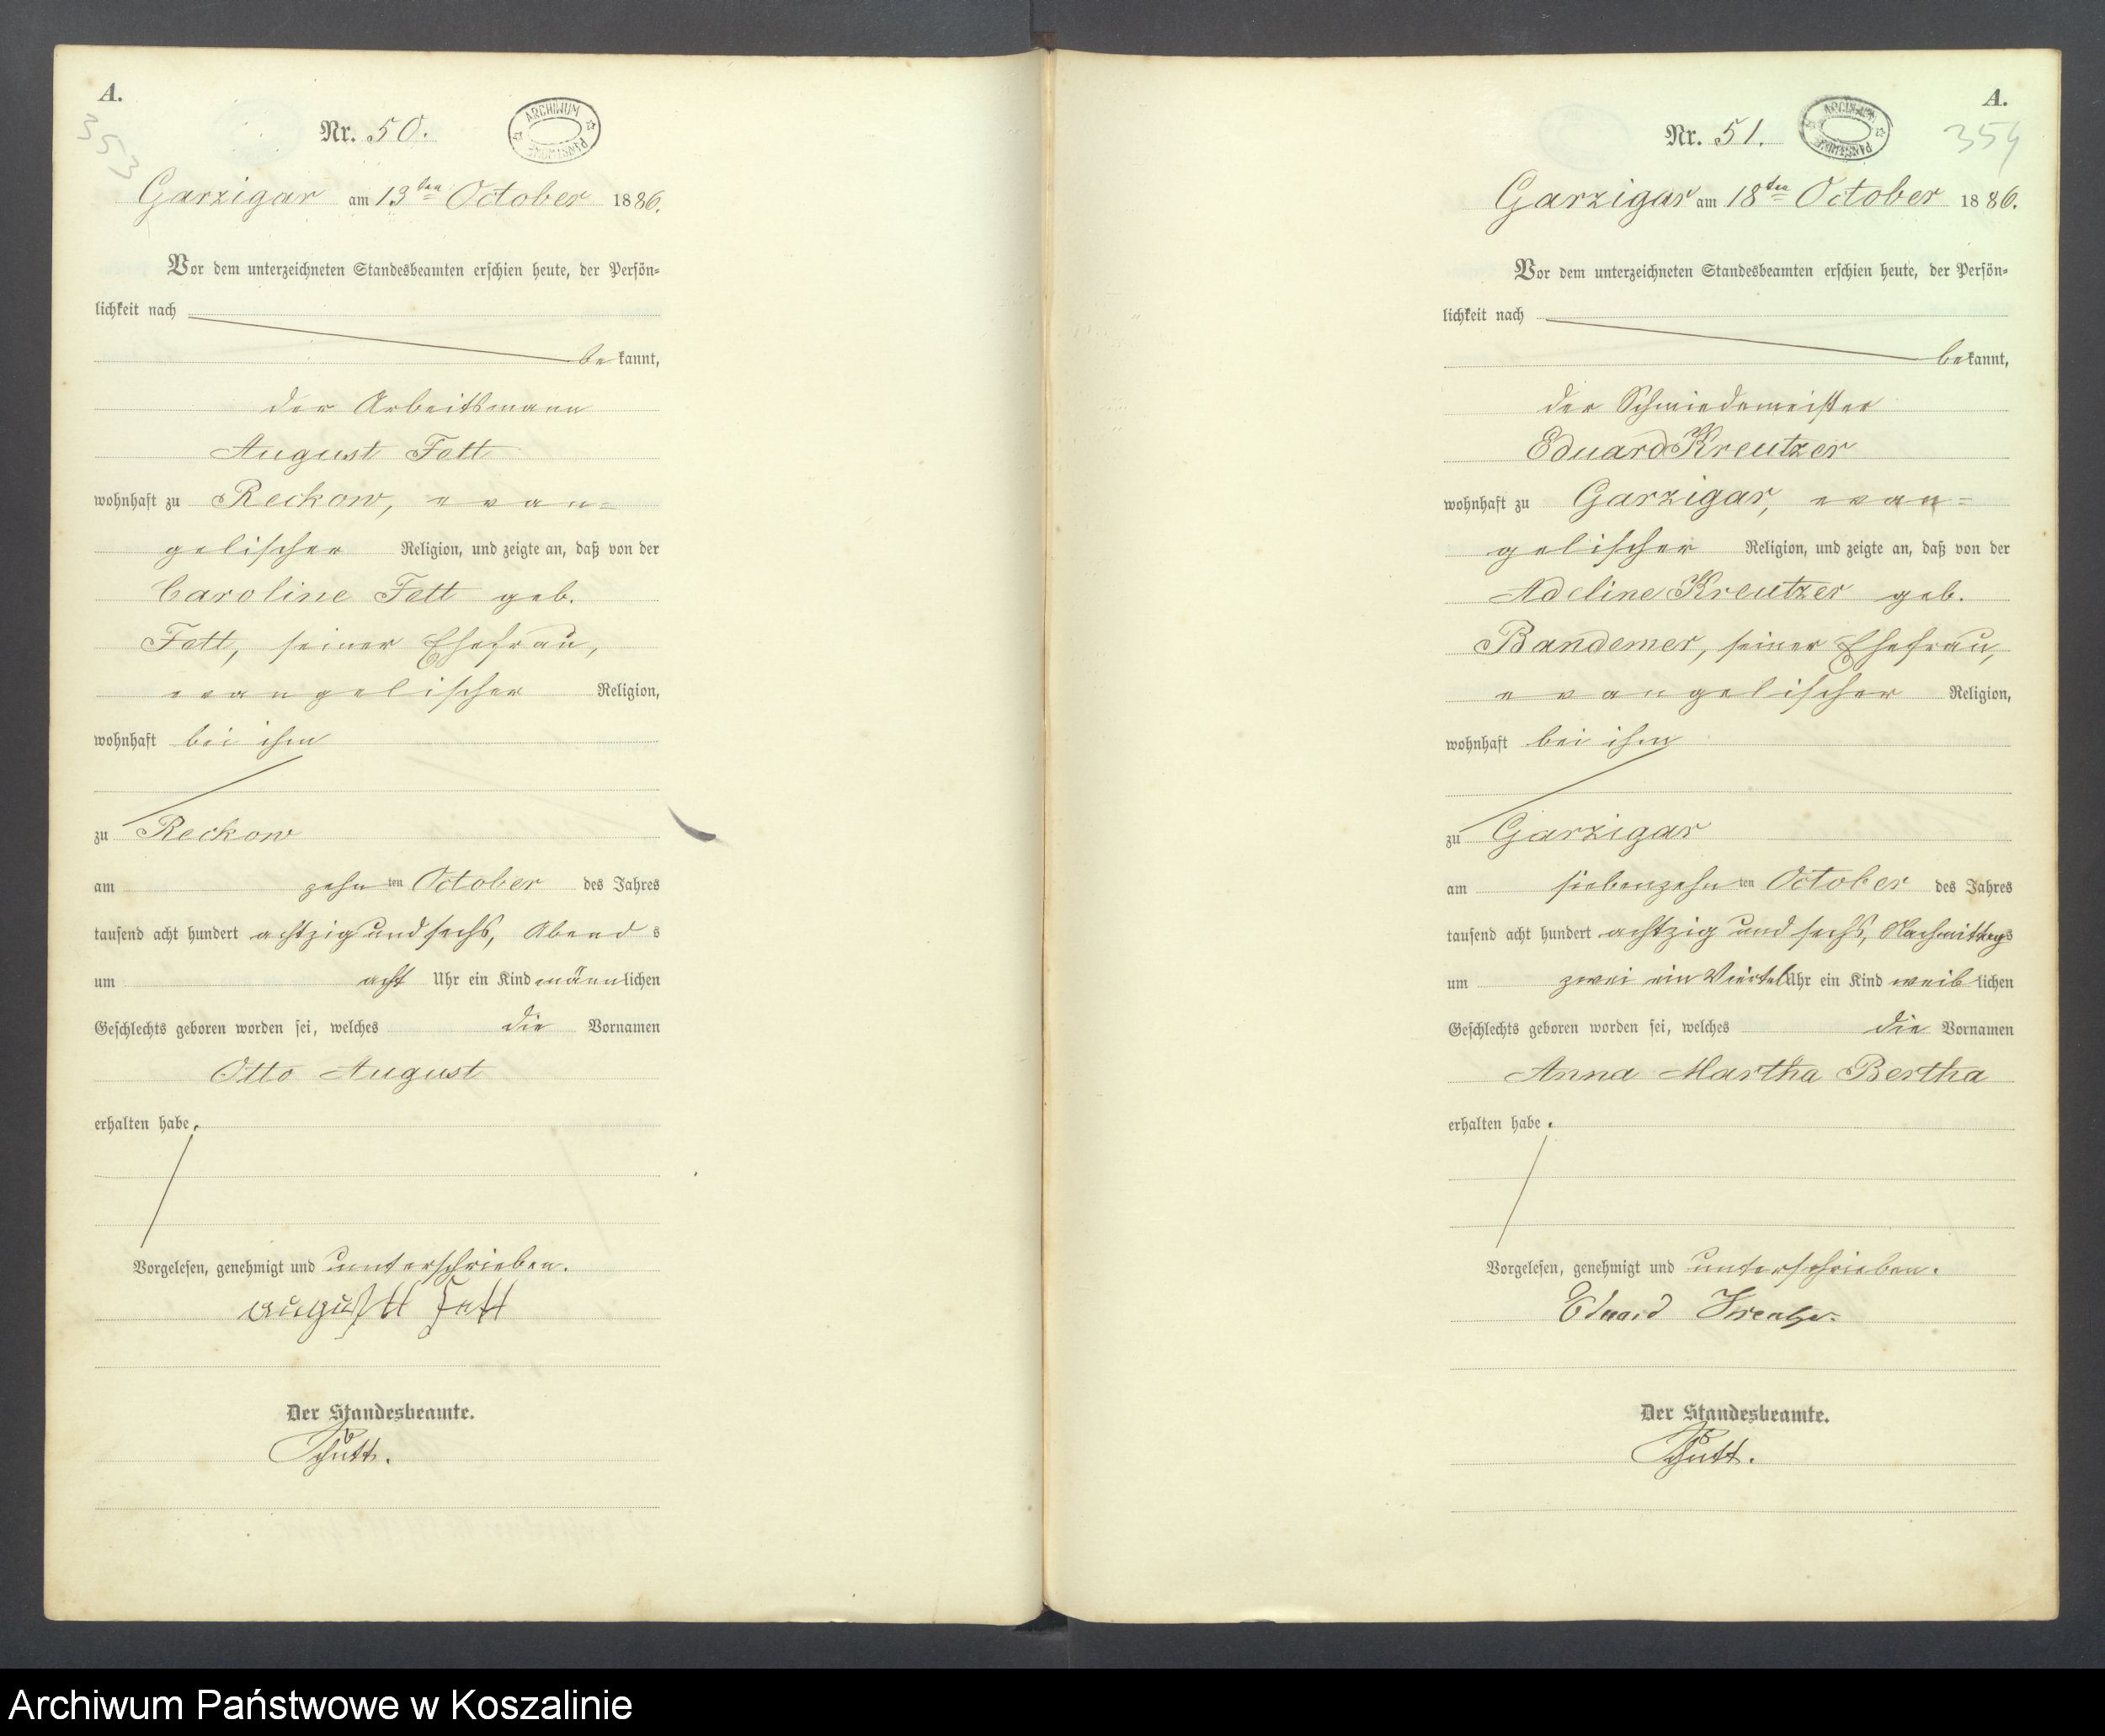 A.
353
Nr. 50.
ARCHIWUM PAŃSTWOWE
Garzigar am 13ten October 1886.
Vor dem unterzeichneten Standesbeamten erschien heute, der Persön-
lichkeit nach
be kannt,
der Arbeitsmann
August Fett
wohnhaft zu Reckow, evan-
gelischer Religion, und zeigte an, daß von der
Caroline Fett geb.
Fett, seiner Ehefrau,
evangelischer Religion,
wohnhaft bei ihm
zu Reckow
am zehn ten October des Jahres
tausend acht hundert achtzig und sechs, Abend s
um acht Uhr ein Kind männlichen
Geschlechts geboren worden sei, welches die Vornamen
Otto August
erhalten habe.
Vorgelesen, genehmigt und unterschrieben.
augustt Fett
Der Standesbeamte.
Schütt.
A.
354
Nr. 51.
ARCHIWUM PAŃSTWOWE
Garzigar am 18ten October 1886.
Vor dem unterzeichneten Standesbeamten erschien heute, der Persön-
lichkeit nach
bekannt,
der Schmiedemeister
Eduard Kreutzer
wohnhaft zu Garzigar, evan-
gelischer Religion, und zeigte an, daß von der
Adeline Kreutzer geb.
Bandemer, seiner Ehefrau,
evangelischer Religion,
wohnhaft bei ihm
zu Garzigar
am siebenzehn ten October des Jahres
tausend acht hundert achtzig und sechs, Nachmittags
um zwei ein Viertel Uhr ein Kind weib lichen
Geschlechts geboren worden sei, welches die Vornamen
Anna Martha Bertha
erhalten habe.
Vorgelesen, genehmigt und unterschrieben.
Eduard Kreutzer
Der Standesbeamte.
Schütt.
Archiwum Państwowe w Koszalinie